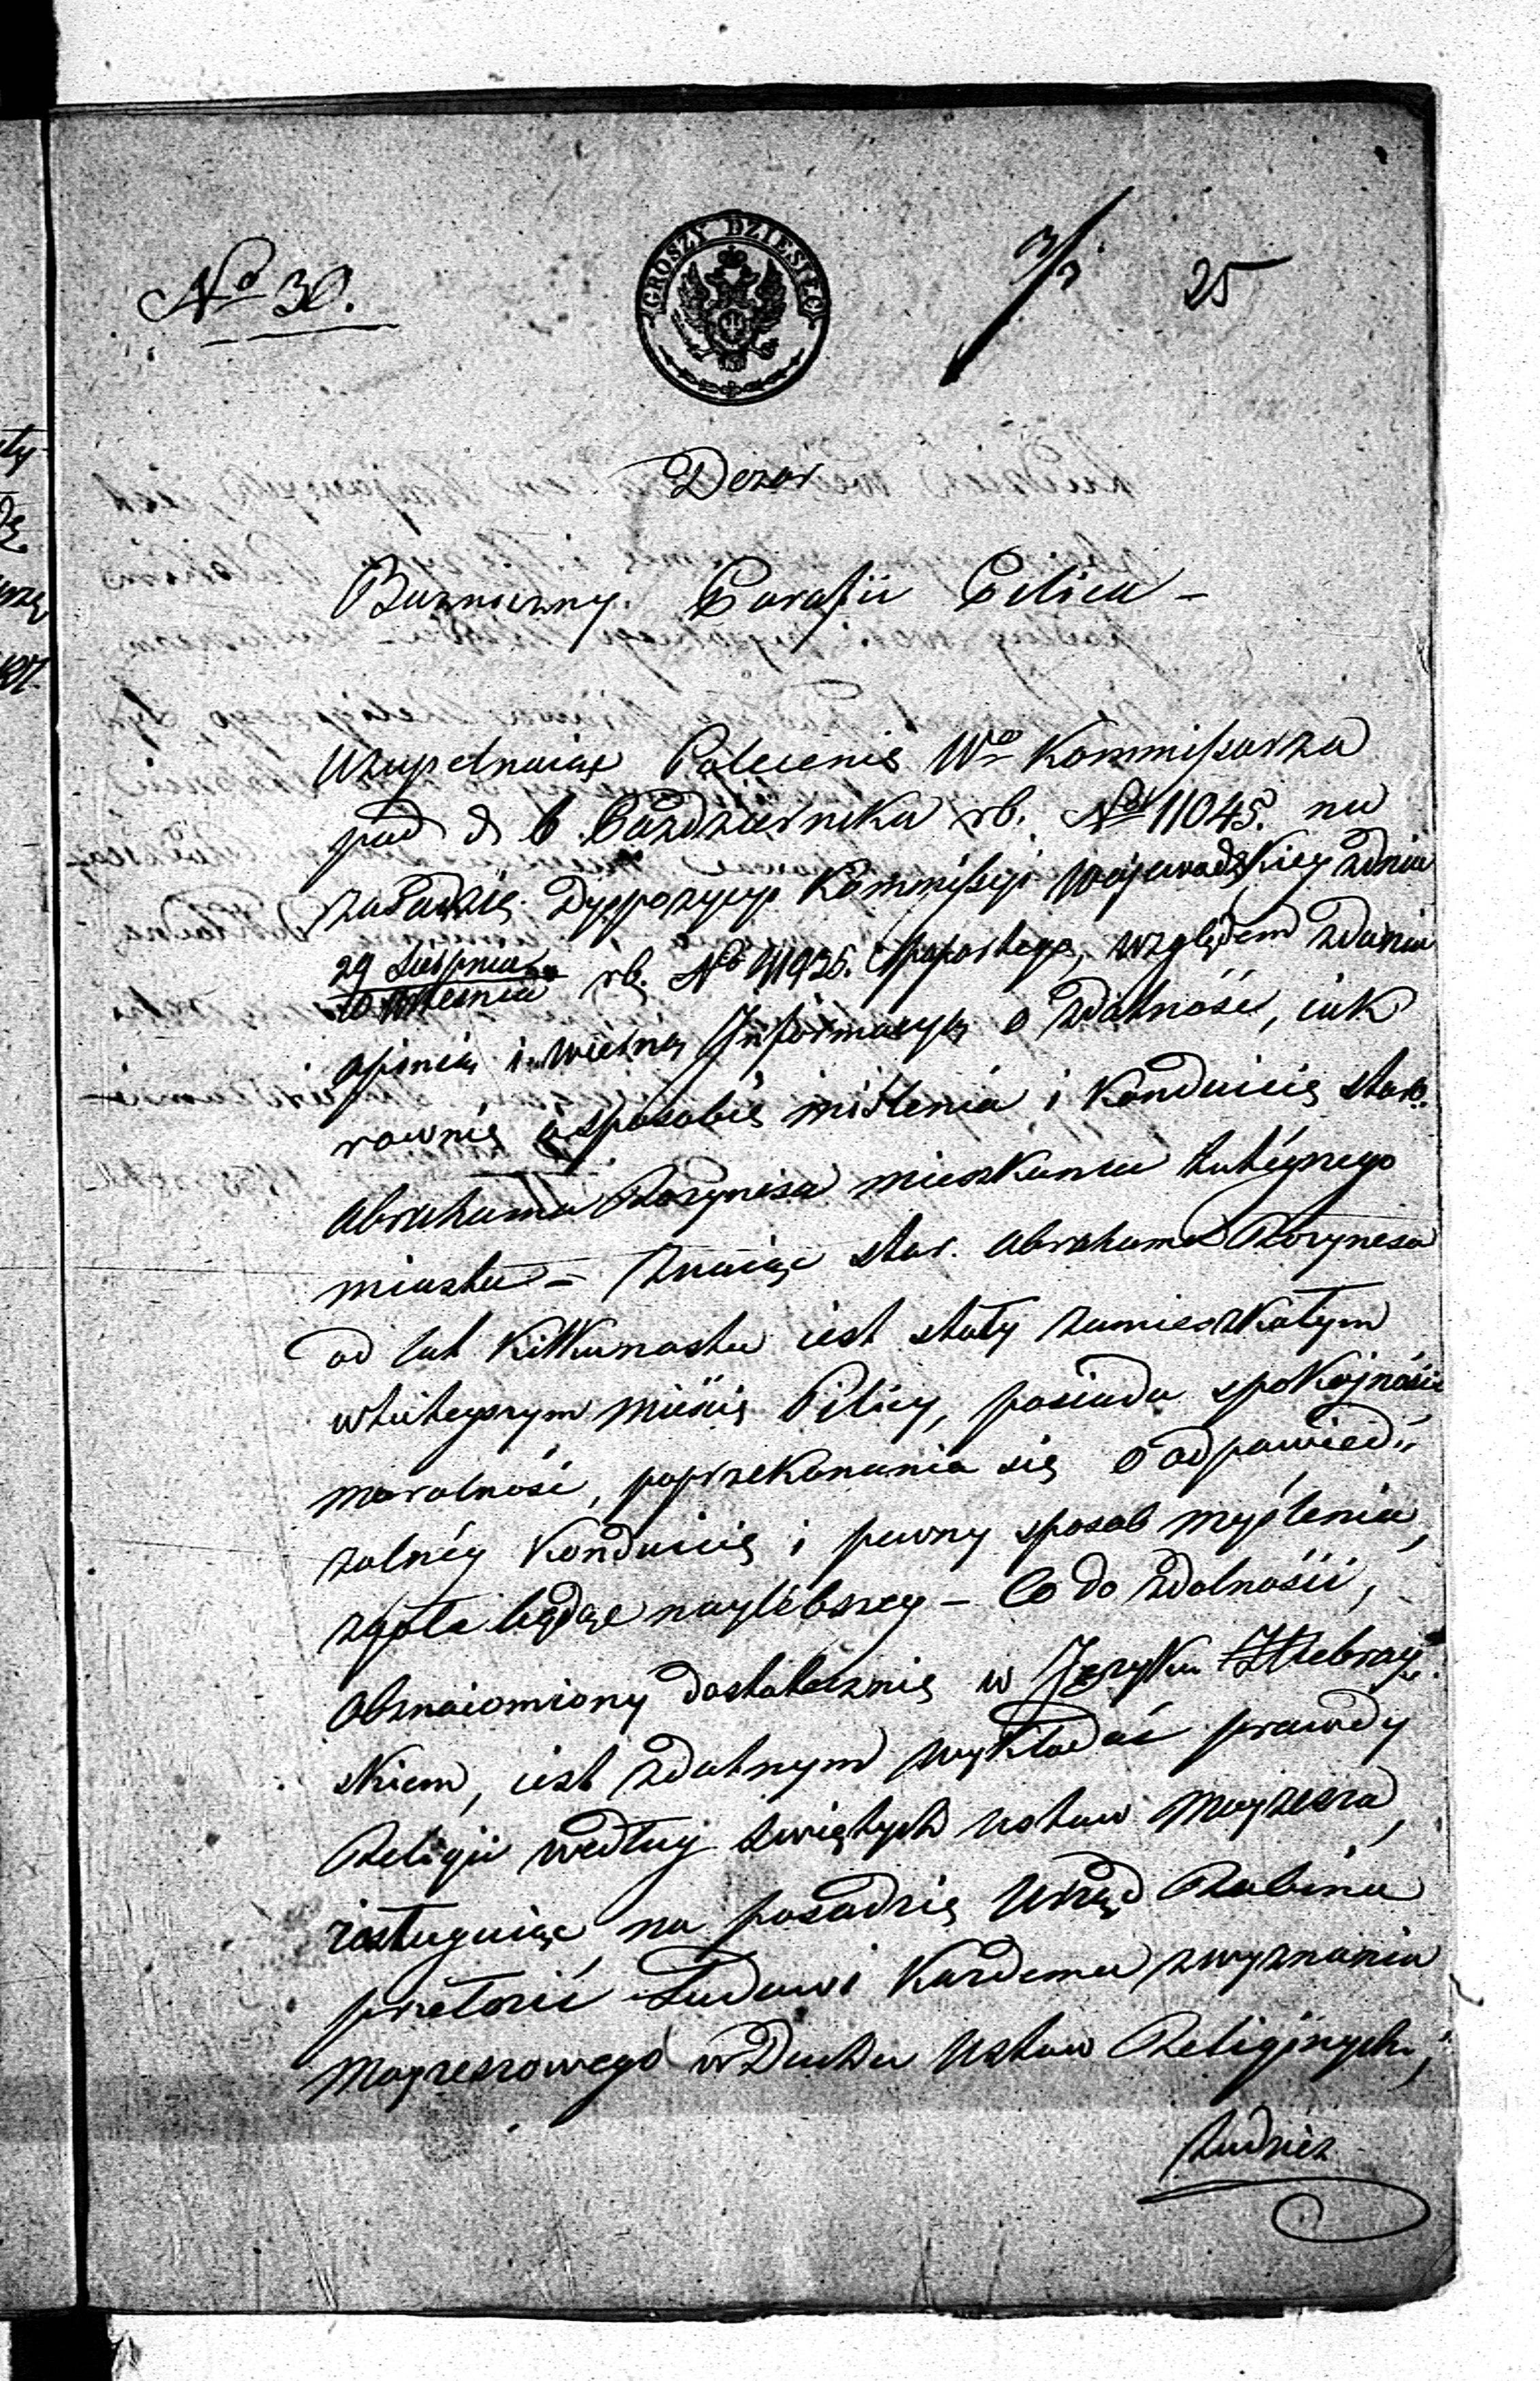 No 30.
GROSZY DZIESIĘĆ
3/3
25
Dozor
Buzniczny. Parafii Pilica –
Uzupełniaiąc Polecenie Wo Kommissarza
pod d 6 Października rb. No 11045. na
zasadzie Dyspozycyi Kommissyi Wojewodzkiey z dnia
29 Sierpnia
10 Września rb. No 41936. względem zdania
opinią i wierną Informacyą o zdolności, iak
rownie o sposobie miślenia i Konduicie staro.
Abrahama mieszkańca tuteyszego
miasta – Znaiąc star. Abrahama
od lat Kilkunastu iest stały zamieszkałym
w tuteyszym mieście Pilicy, posiada spokojność
moralność, poprzekonania się o odpowied„
zalnéy Konduicie i pewny sposob myślenia,
zgoła będąc naylebszey – Co do zdolności,
obznaiomiony dostatecznie w Języku Hebray„
skiem, iest zdatnym wykładać prawdy
Religii według świętych Ustaw Mojzesza,
zasługuiąc na posadzie Urząd Rabina
Ludowi Kazdemu z wyznania
Mojzeszowego w Duchu Ustaw Religijnych,
tudzież